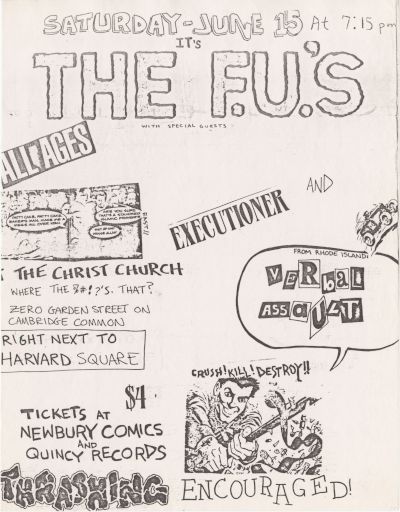 SATURDAY - JUNE 15 At 7:15 pm
IT'S
THE F.U.'S
WITH SPECIAL GUESTS
ALL AGES
AND
EXECUTIONER
FROM RHODE ISLAND:
VERBAL
ASSAULT
THE CHRIST CHURCH
WHERE THE %#!?'S. THAT?
ZERO GARDEN STREET ON
CAMBRIDGE COMMON
RIGHT NEXT TO
HARVARD SQUARE
$4
TICKETS AT
NEWBURY COMICS
AND
QUINCY RECORDS
CRUSH! KILL! DESTROY!!
THRASHING
ENCOURAGED!